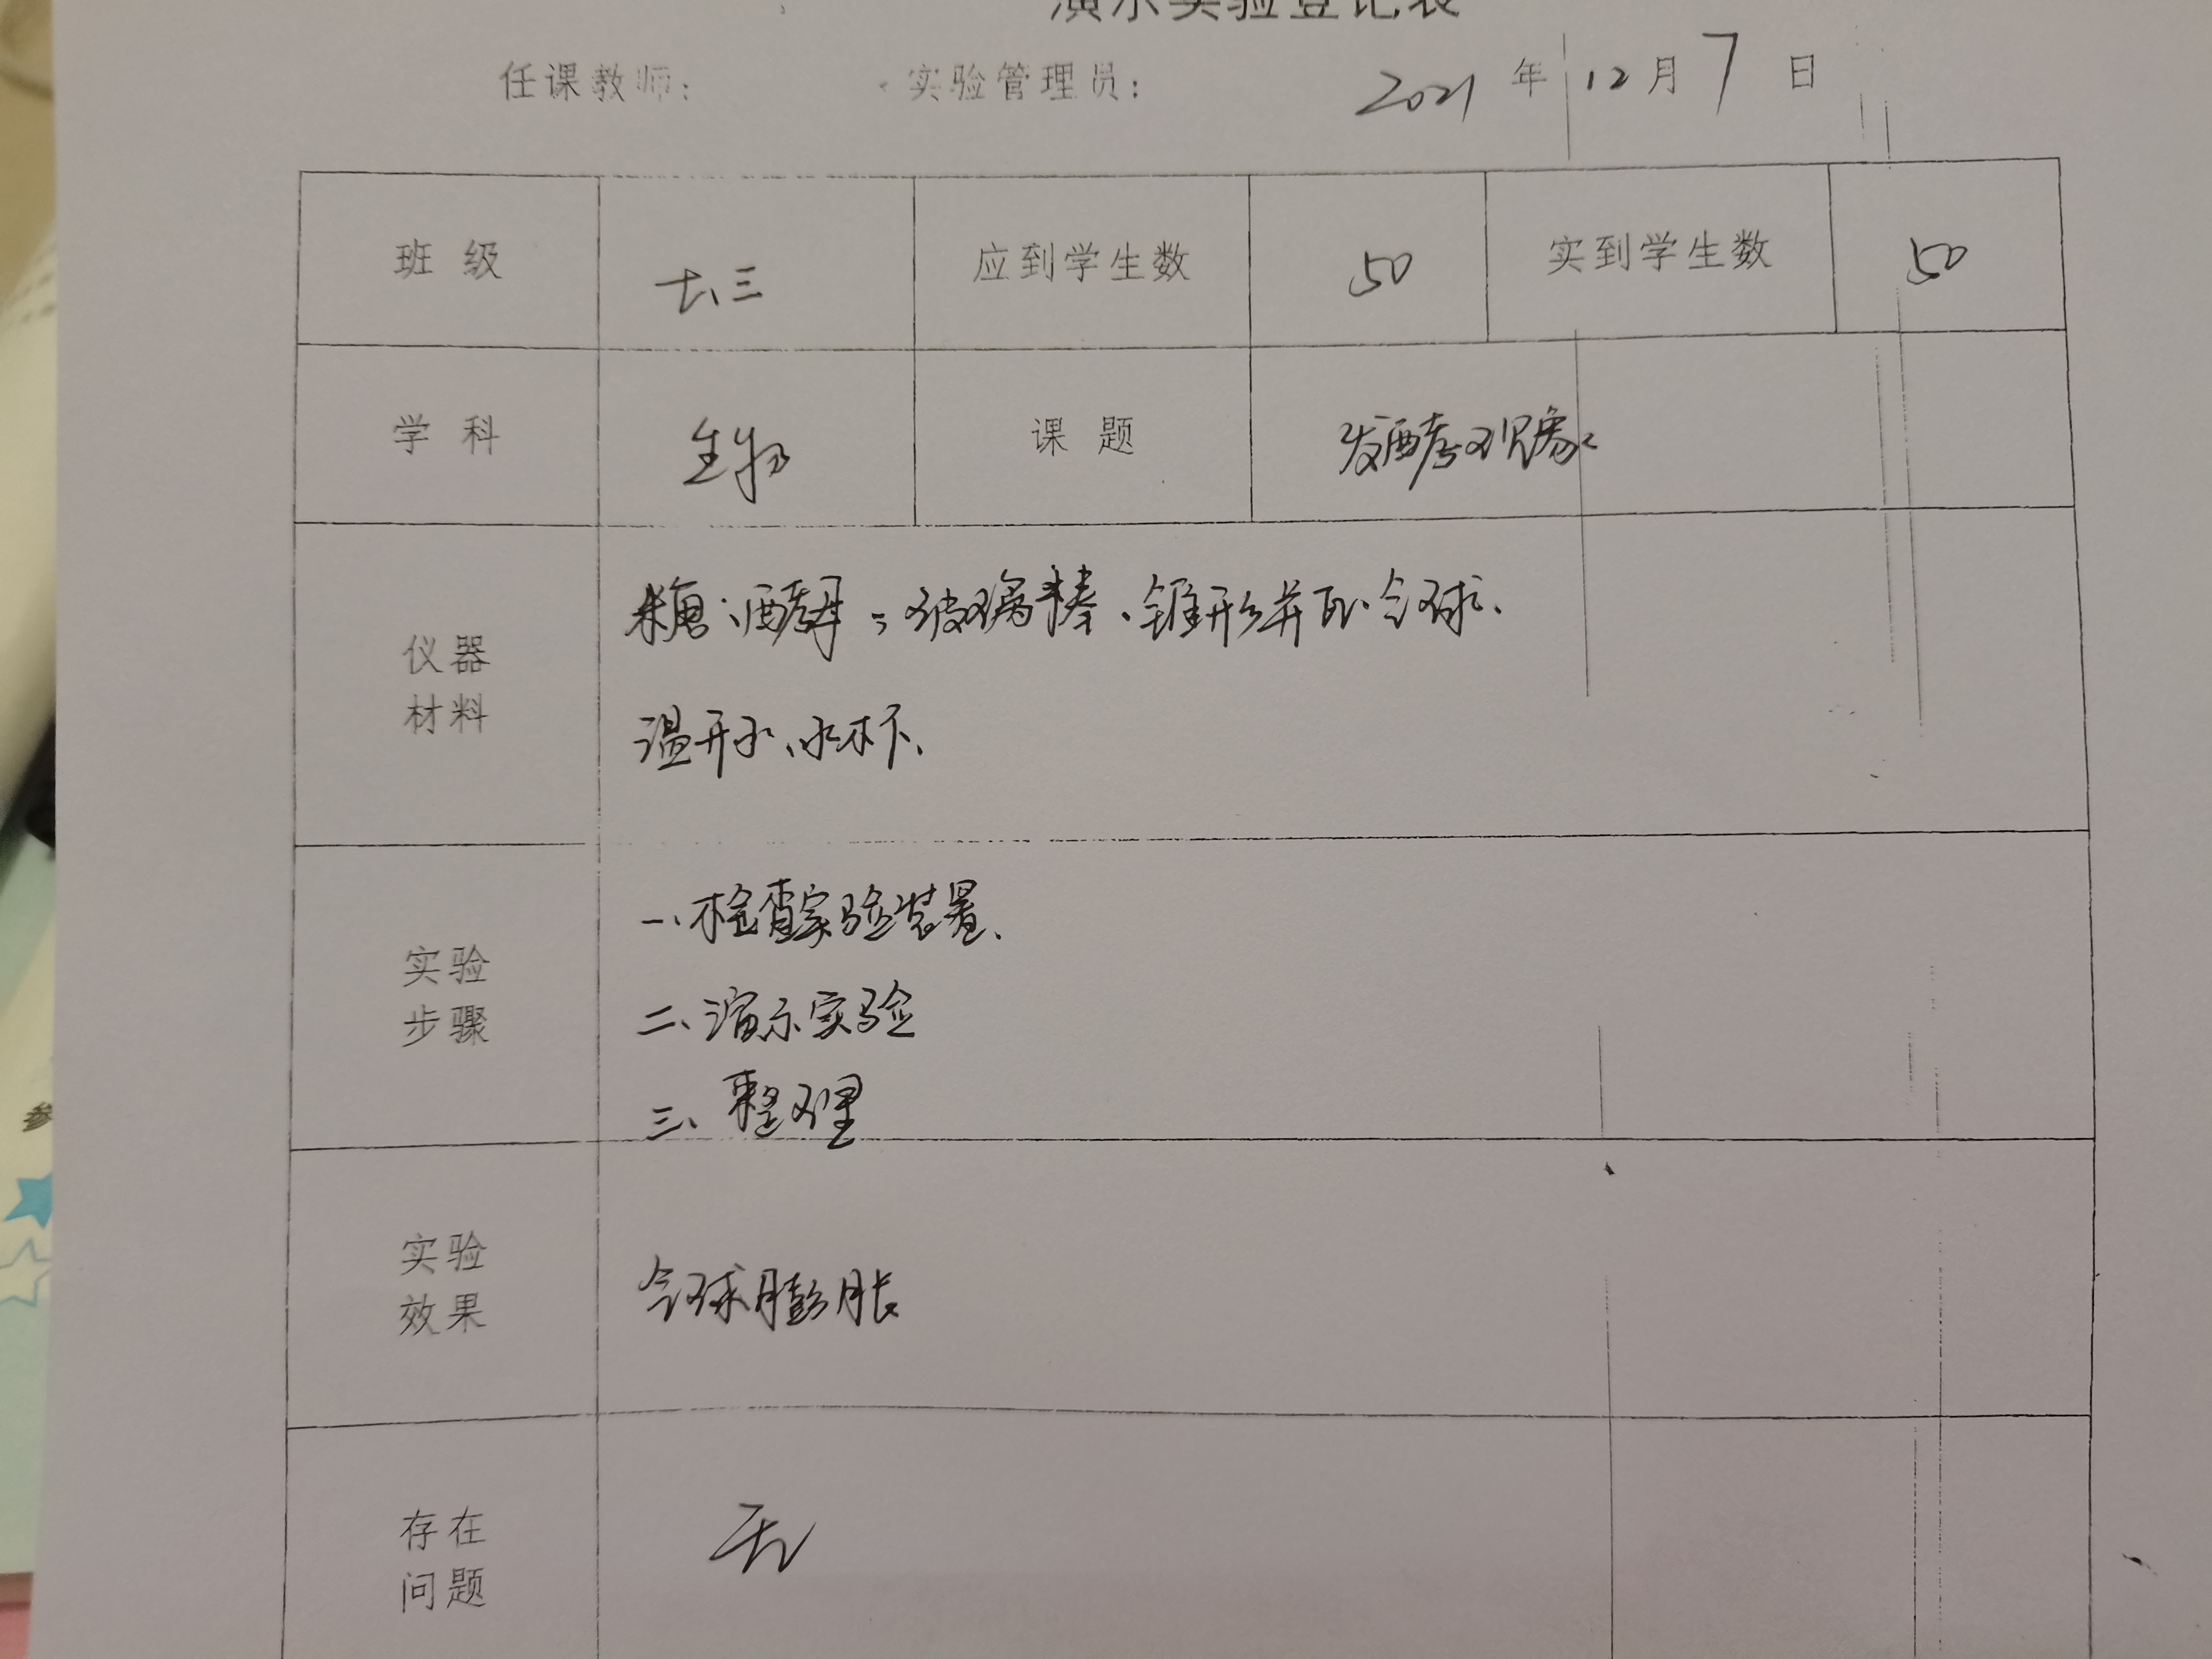 演示实验登记表
任课教师： 实验管理员： 2021 年 12 月 7 日
班 级 七、三 应到学生数 50 实到学生数 50
学 科 生物 课 题 发酵现象
仪器 材料 糖、酵母、玻璃棒、锥形瓶、气球、
温开水、水杯、
实验 步骤 一、检查实验装置、
二、演示实验
三、整理
实验 效果 气球膨胀
存在 问题 无
参